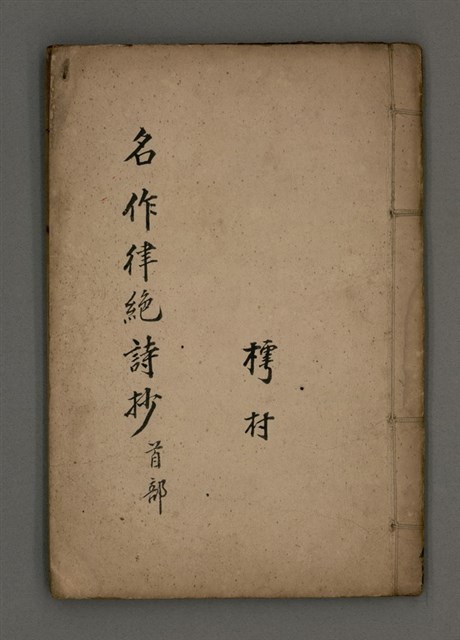 樗村
名作律絶詩抄
首部